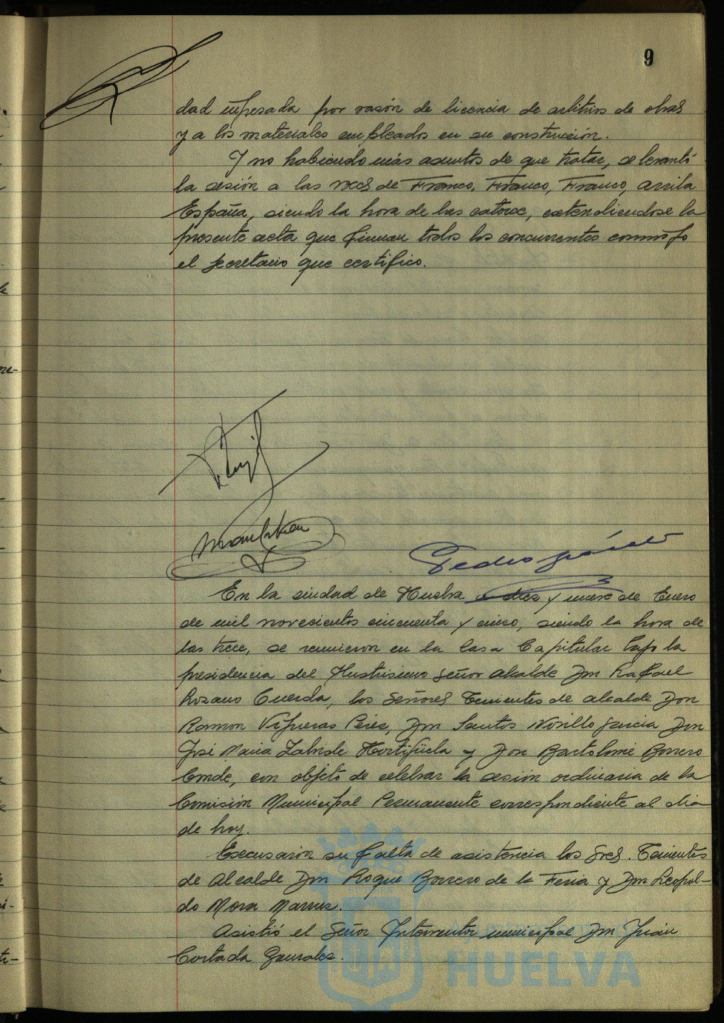 9
dad ingresada por razón de licencia de arbitrios de obras
y a los materiales empleados en su construcción.
Y no habiendo más asuntos de que tratar, se levantó
la sesión a las voces de Franco, Franco, Franco, arriba
España, siendo la hora de las catorce, extendiendose la
presente acta que firman todos los concurrentes conmigo
el Secretario que certifico.
Pedro
En la ciudad de Huelva a diez y nueve de Enero
de mil novecientos cincuenta y cinco, siendo la hora de
las trece, se reunieron en la Casa Capitular bajo la
presidencia del Ilustrisimo Señor Alcalde Don Rafael
Rozano Cuerda, los Señores Tenientes de Alcalde Don
Ramon Vigueras Perez, Don Santos Novillo Garcia, Don
José Maria Hortigüela y Don Bartolomé Borrero
Conde, con objeto de celebrar la sesión ordinaria de la
Comisión Municipal Permanente correspondiente al dia
de hoy.
Excusaron su falta de asistencia los Sres. Tenientes
de Alcalde Don Roque Borrero de la Feria y Don Leopol-
do Mora
Asistió el Señor Interventor municipal Don Juan
Cortada Gonzalez.
HUELVA